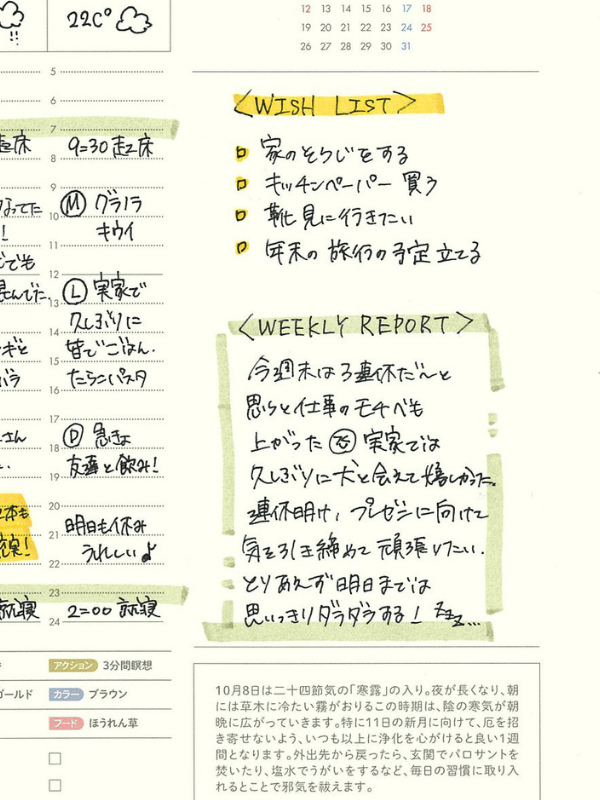 22C°
12 13 14 15 16 17 18
19 20 21 22 23 24 25
26 27 28 29 30 31
5
6
7
9=30 起床
8
9
Ⓜ グラノラ
10
キウイ
11
12
Ⓛ 実家で
13
久しぶりに
14
皆でごはん.
15
たらこパスタ
16
17
Ⓓ 急きょ
18
友達と飲み!
19
20
明日も休み
21
うれしい♪
22
23
2=00 就寝
24
<WISH LIST>
家のそうじをする
キッチンペーパー 買う
靴見に行きたい
年末の旅行の予定立てる
<WEEKLY REPORT>
今週末は3連休だ〜と
思うと仕事のモチベも
上がった 実家では
久しぶりに犬と会えて嬉しかった。
連休明け, プレゼンに向けて
気を引き締めて頑張りたい.
とりあえず明日までは
思いっきりダラダラする! zzz...
アクション 3分間瞑想
ゴールド カラー ブラウン
フード ほうれん草
10月8日は二十四節気の「寒露」の入り。夜が長くなり、朝
には草木に冷たい霧がおりるこの時期は、陰の寒気が朝
晩に広がっていきます。特に11日の新月に向けて、厄を招
き寄せないよう、いつも以上に浄化を心がけると良い1週
間となります。外出先から戻ったら、玄関でパロサントを
焚いたり、塩水でうがいをするなど、毎日の習慣に取り入
れることで邪気を祓えます。